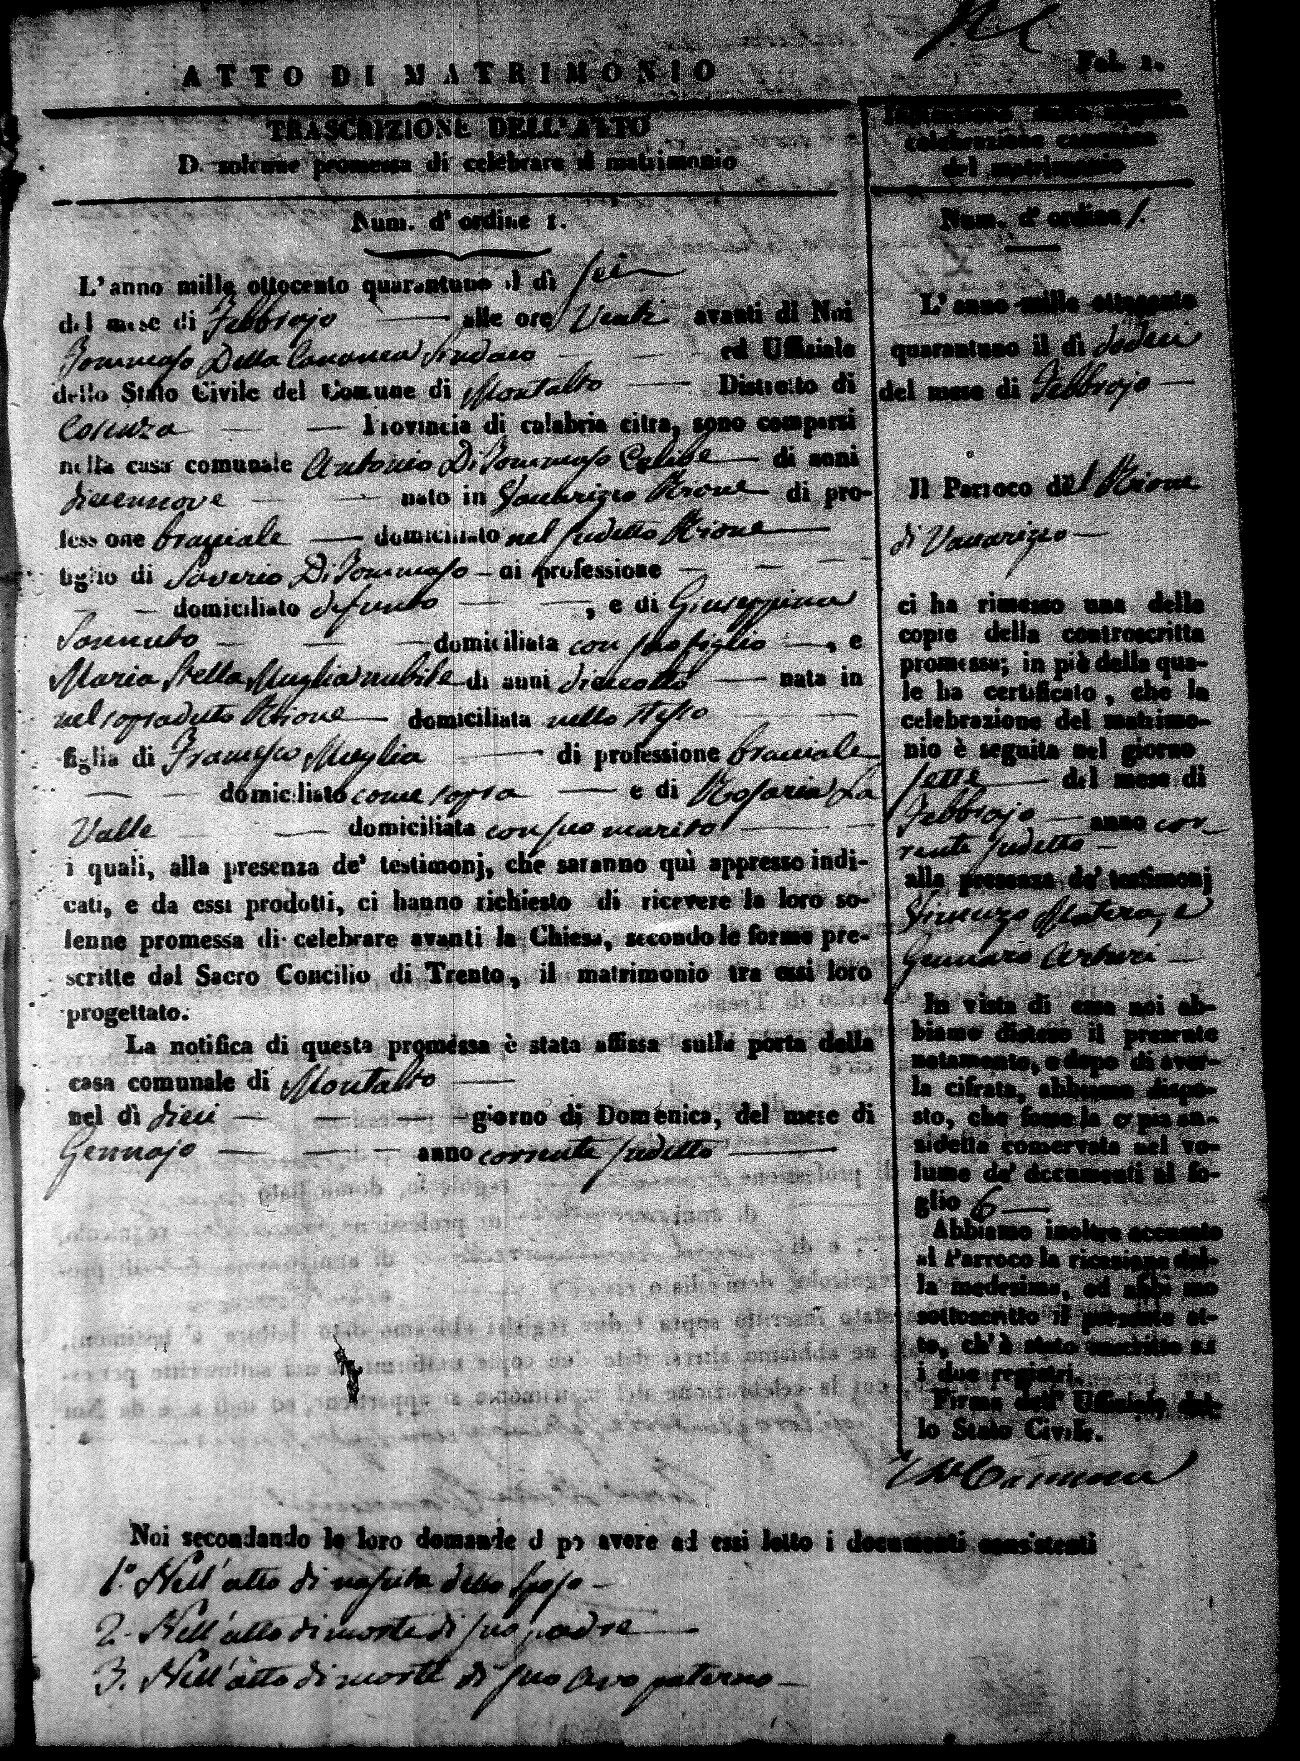 Fol. 1.
ATTO DI MATRIMONIO
TRASCRIZIONE DELL'ATTO
Di solenne promessa di celebrare il matrimonio
Num. d' ordine 1.
L'anno mille ottocento quarantuno il dì sei
del mese di Febbrajo alle ore Venti avanti di Noi
Tommaso Della Cananea Sindaco ed Uffiziale
dello Stato Civile del Comune di Montalto Distretto di
Cosenza Provincia di calabria citra, sono comparsi
nella casa comunale Antonio DiTommaso Celibe di anni
diecennove nato in Vaccarizzo Rione di pro-
fessione bracciale domiciliato nel sudetto Rione
figlio di Saverio DiTommaso di professione
domiciliato defunto , e di Giuseppina
Sannuto domiciliata con suo figlio , e
Maria Stella Muglia nubile di anni dieciotto nata in
nel sopradetto Rione domiciliata nello stesso
figlia di Francesco Muglia di professione bracciale
domiciliato come sopra e di Rosaria La
Valle domiciliata con suo marito
i quali, alla presenza de' testimonj, che saranno quì appresso indi-
cati, e da essi prodotti, ci hanno richiesto di ricevere la loro so-
lenne promessa di celebrare avanti la Chiesa, secondo le forme pre-
scritte dal Sacro Concilio di Trento, il matrimonio tra essi loro
progettato.
La notifica di questa promessa è stata affissa sulla porta della
casa comunale di Montalto
nel dì dieci giorno di Domenica, del mese di
Gennajo anno corrente sudetto
celebrazione canonica
del matrimonio
Num. d' ordine 1.
L'anno mille ottocento
quarantuno il dì dodeci
del mese di Febbrajo
Il Parroco del Rione
di Vaccarizzo
ci ha rimesso una delle
copie della controscritta
promessa; in piè della qua-
le ha certificato, che la
celebrazione del matrimo-
nio è seguita nel giorno
sette del mese di
Febbrajo anno cor-
rente sudetto
alla presenza de' testimonj
Vincenzo Matera, e
Gennaro Arturi
In vista di essa noi ab-
biamo disteso il presente
notamento, e dopo di aver-
la cifrata, abbiamo dispo-
sto, che fosse la copia an-
zidetta conservata nel vo-
lume de' documenti al fo-
glio 6
Abbiamo inoltre accusato
al Parroco la ricezione del-
la medesima, ed abbiamo
sottoscritto il presente at-
to, ch'è stato inscritto su
i due registri.
Firma dell' Uffiziale del-
lo Stato Civile.
Noi secondando le loro domande dopo avere ad essi letto i documenti consistenti
1.° Nell'atto di nascita dello sposo
2. Nell'atto di morte di suo padre
3. Nell'atto di morte di suo avo paterno